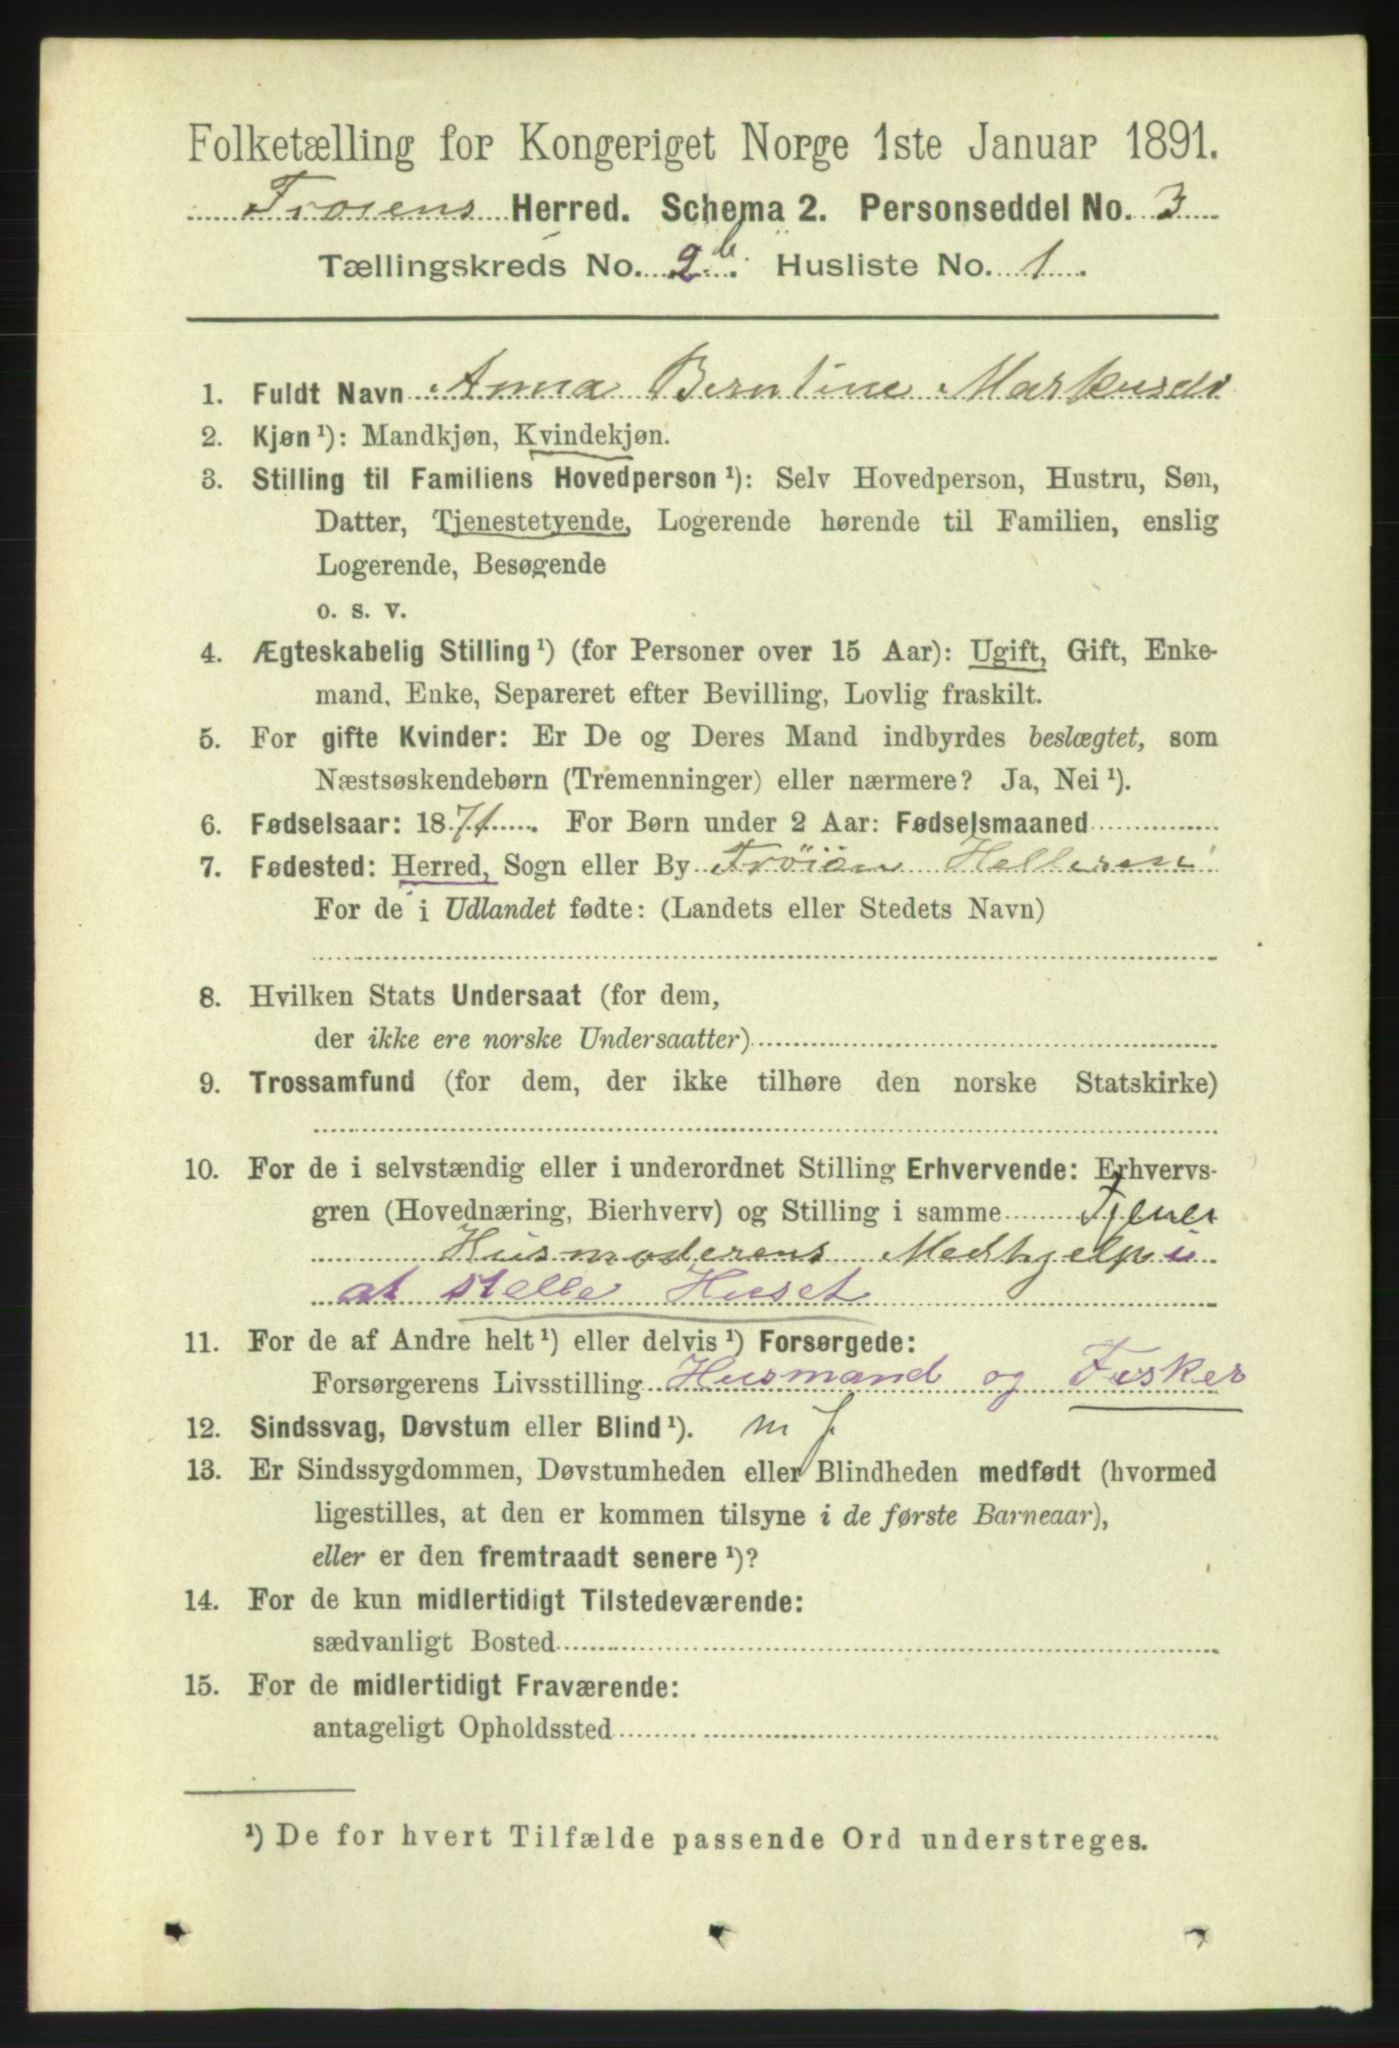 Folketælling for Kongeriget Norge 1ste Januar 1891.
Froiens Herred. Schema 2. Personseddel No. 3
Tællingskreds No. 2 b. Husliste No. 1.
1. Fuldt Navn Anna Berntine Markusdr
2. Kjøn ¹): Mandkjøn, Kvindekjøn.
3. Stilling til Familiens Hovedperson ¹): Selv Hovedperson, Hustru, Søn,
Datter, Tjenestetyende, Logerende hørende til Familien, enslig
Logerende, Besøgende
o. s. v.
4. Ægteskabelig Stilling ¹) (for Personer over 15 Aar): Ugift, Gift, Enke-
mand, Enke, Separeret efter Bevilling, Lovlig fraskilt.
5. For gifte Kvinder: Er De og Deres Mand indbyrdes beslægtet, som
Næstsøskendebørn (Tremenninger) eller nærmere? Ja, Nei ¹).
6. Fødselsaar: 1871. For Børn under 2 Aar: Fødselsmaaned
7. Fødested: Herred, Sogn eller By Fröien
For de i Udlandet fødte: (Landets eller Stedets Navn)
8. Hvilken Stats Undersaat (for dem,
der ikke ere norske Undersaatter)
9. Trossamfund (for dem, der ikke tilhøre den norske Statskirke)
10. For de i selvstændig eller i underordnet Stilling Erhvervende: Erhvervs-
gren (Hovednæring, Bierhverv) og Stilling i samme Tjener
Husmoderens Medhjelp i
at stelle Huset
11. For de af Andre helt ¹) eller delvis ¹) Forsørgede:
Forsørgerens Livsstilling Husmand og Fisker
12. Sindssvag, Døvstum eller Blind ¹).
13. Er Sindssygdommen, Døvstumheden eller Blindheden medfødt (hvormed
ligestilles, at den er kommen tilsyne i de første Barneaar),
eller er den fremtraadt senere ¹)?
14. For de kun midlertidigt Tilstedeværende:
sædvanligt Bosted
15. For de midlertidigt Fraværende:
antageligt Opholdssted
¹) De for hvert Tilfælde passende Ord understreges.